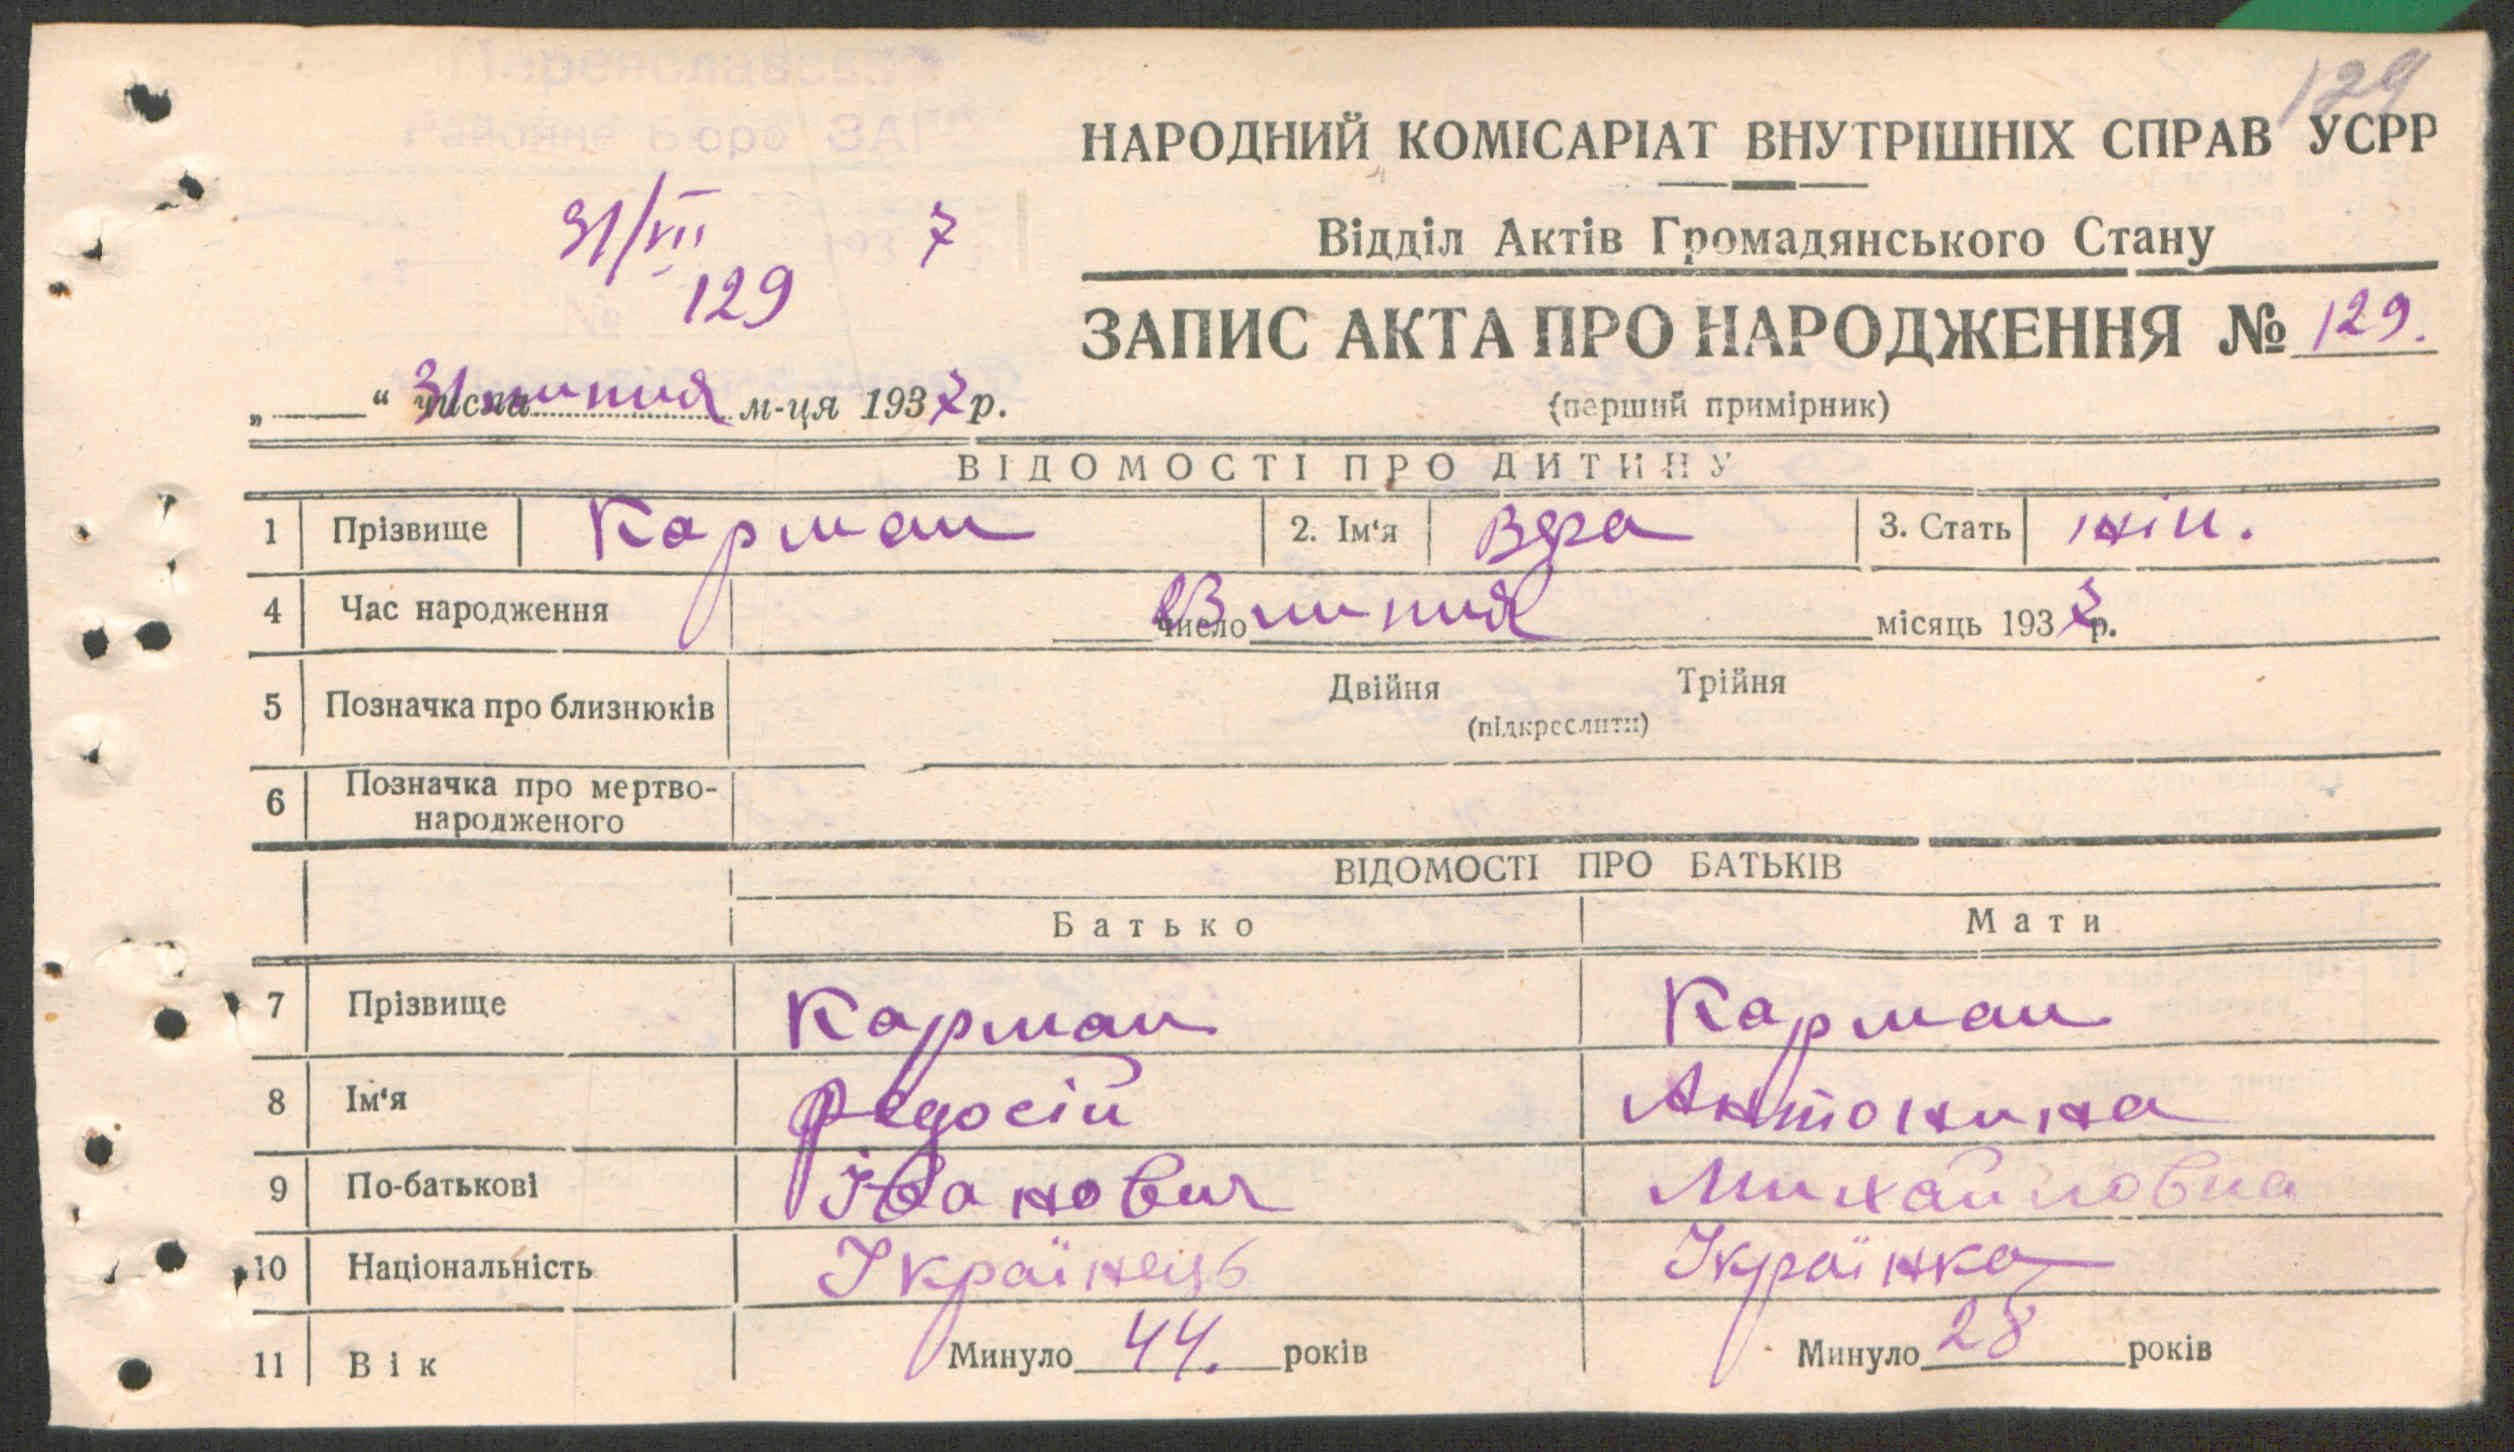 129
НАРОДНИЙ КОМІСАРІАТ ВНУТРІШНІХ СПРАВ УСРР
31/VII 7
129
Відділ Актів Громадянського Стану
ЗАПИС АКТА ПРО НАРОДЖЕННЯ № 129.
(перший примірник)
„ “ числа 31 липня м-ця 1937 р.
ВІДОМОСТІ ПРО ДИТИНУ
1 Прізвище Карман 2. Ім'я Вера 3. Стать жін.
4 Час народження 23 число липня місяць 1937 р.
5 Позначка про близнюків Двійня Трійня
(підкреслити)
6 Позначка про мертво-
народженого
ВІДОМОСТІ ПРО БАТЬКІВ
Батько Мати
7 Прізвище Карман Карман
8 Ім'я Федосій Антонина
9 По-батькові Іванович Михайловна
10 Національність Українець Українка
11 Вік Минуло 44. років Минуло 28 років